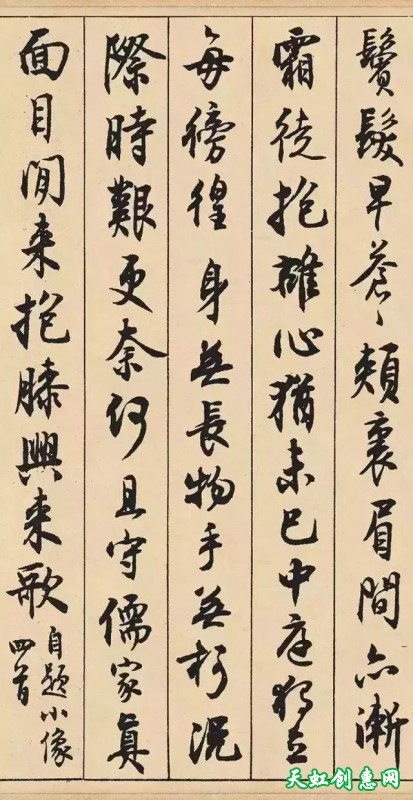 鬢髮早蒼〻頰裏眉間亦漸
霜徒抱雄心猶未已中庭獨立
每徬徨身無長物手無柯況
際時艱更奈何且守儒家真
面目閒来抱膝興来歌
自題小像
四首
天虹创意网